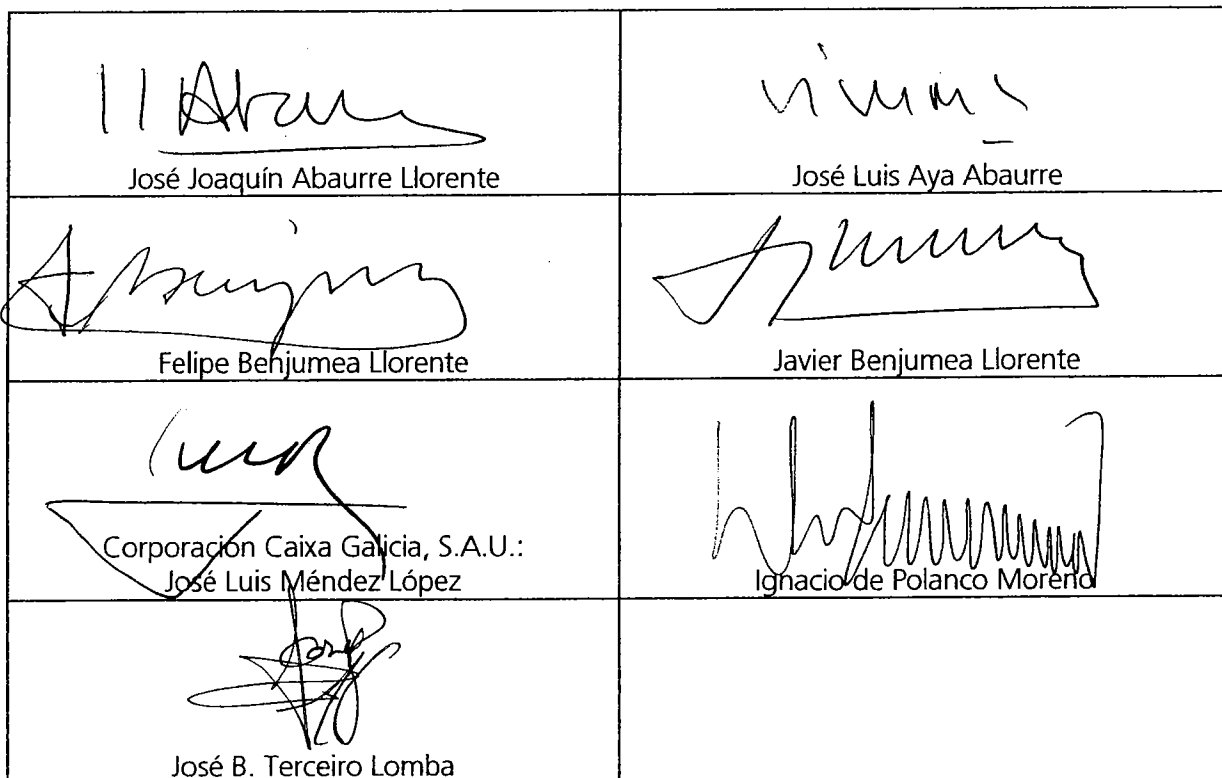 José Joaquín Abaurre Llorente
José Luis Aya Abaurre
Felipe Benjumea Llorente
Javier Benjumea Llorente
Corporación Caixa Galicia, S.A.U.:
José Luis Méndez López
Ignacio de Polanco Moreno
José B. Terceiro Lomba